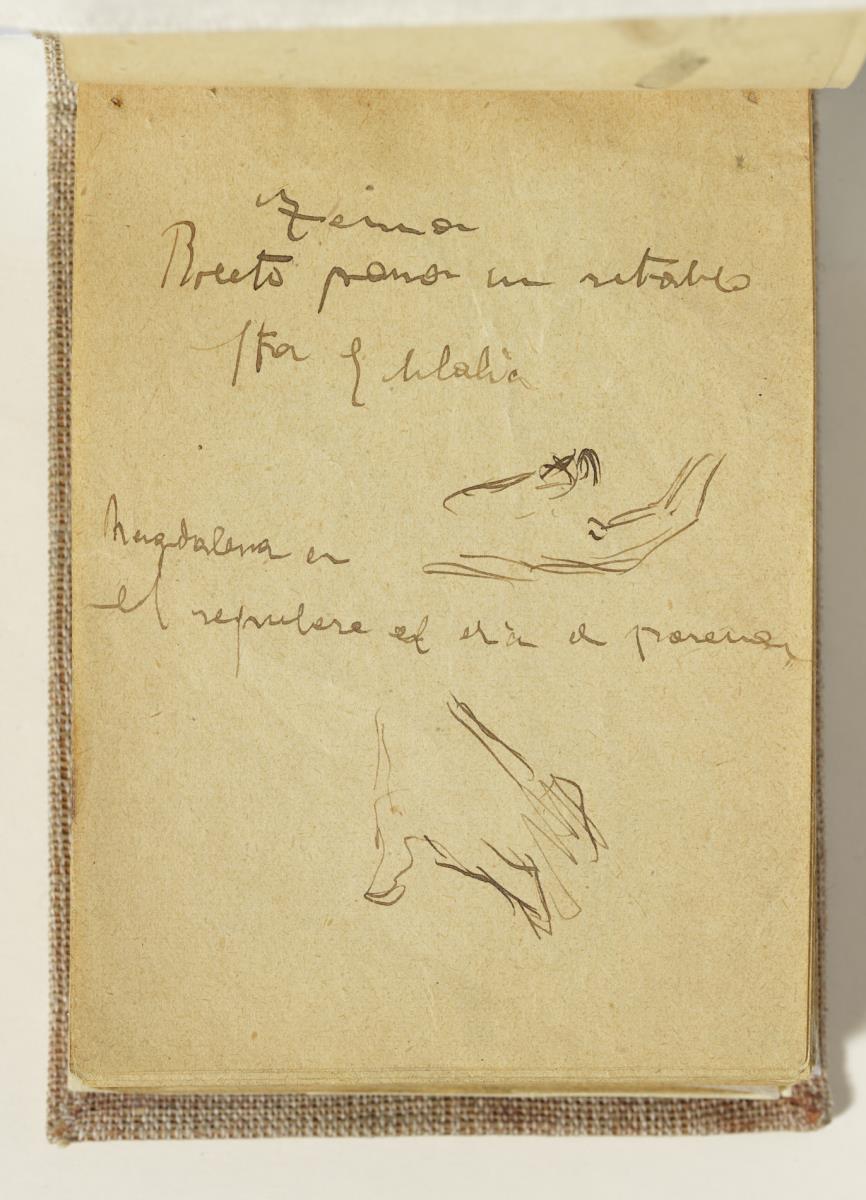 Tema
Boceto para un retablo
Sta Eulalia
Magdalena en
el sepulcro el dia de